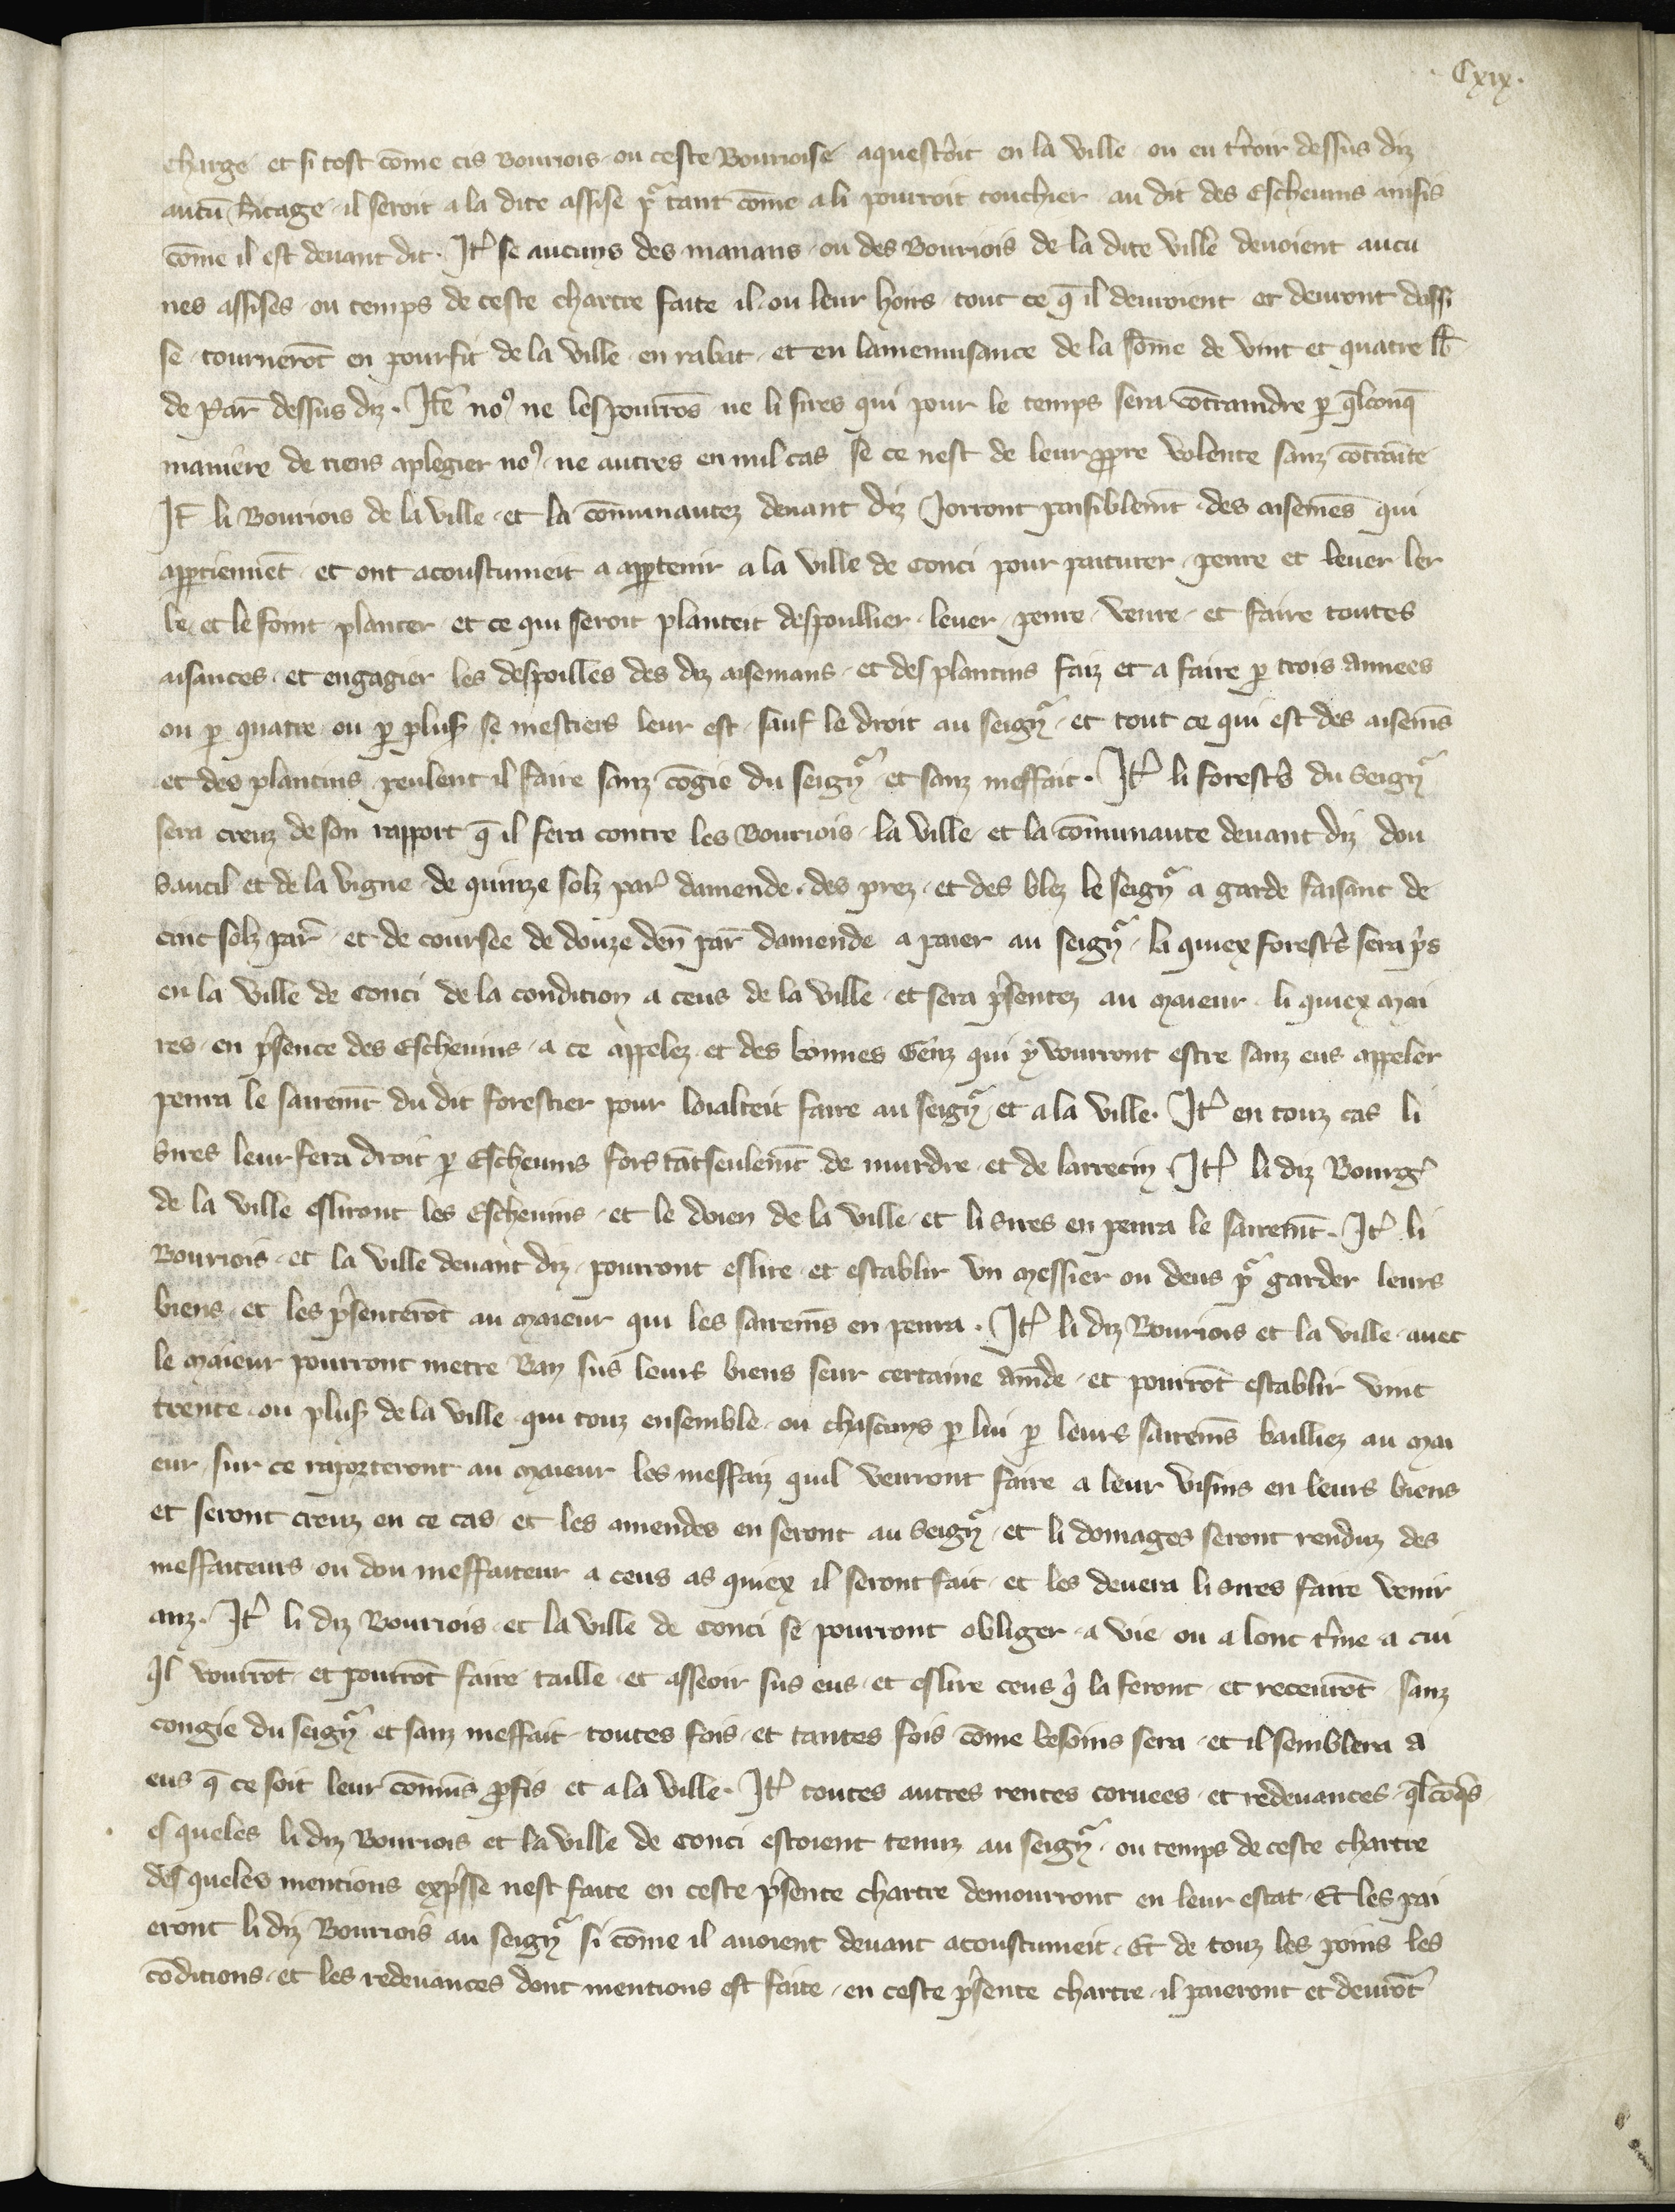 . Cxix.
charge et si tost cōme cis Bouriois ou ceste Bouroise aquestoit en la ville ou en tr̄oir dessus diz
aucū h̄itage . il seroit a la dite assise pr̃ tant cōme a li pourroit touchier au dit des Escheuins ainsis
cōme il est deuant dit . It̓ se aucuns des manans ou des Bouriois de la dite ville deuoient aucu
nes assises . ou temps de ceste chartre faite il . ou leur hoirs . tout ce q̄ il deuroient et deuront dassi
se . tournerōt en pourfit de la ville . en rabat . et en lamenuisance de la sōme de vint et quatre lb̄
de Par̄ dessus diz . Itē noꝯ ne les pourrōs ne li sires qui pour le temps sera cōtraindre ꝑ q̄lconq̄
maniere de riens aplegier noꝯ . ne autres en nul cas se ce nest de leur ꝓpre volente sanz cōtrainte
It̄ li Bouriois de la ville . et la cōmunautez deuant diz Jorront paisiblemt̄ . des aisemēs qui
apꝑtiennēt . et ont acoustumeit a apꝑtenir a la ville de Conci pour paiturer . penre et leuer ler
be . et le foint plancer . et ce qui seroit planteit despoullier . leuer . penre . venre . et faire toutes
aisances . et engagier les despoilles des diz aisemans . et des plantins faiz et a faire ꝑ trois annees
ou ꝑ quatre ou ꝑ plus se mestiers leur est . sauf le droit au seigñ . et tout ce qui est des aisem̄s
et des plantins peulent il faire sanz cōgie du seigñ . et sanz meffait . It̓ li forest̓s du seigñ
sera creuz de son rapport q̄ il fera contre les Bouriois . la ville et la cōmunaute deuant diz dou
saucil et de la vigne de quinze solz par̓ damende . des prez . et des blez le seigñ a garde faisant de
cinc solz par̄ . et de coursee de douze den̄ par̄ damende a paier au seigñ . li quiex forest̓s sera p̓s
en la ville de Conci de la condition a ceus de la ville . et sera p̓sentez au maieur . li quiex mai
res . en p̓sence des Escheuins . a ce appelez et des bonnes Genz qui y vourront estre sanz eus appeler
penra le sairemt̄ du dit forestier pour loialteit faire au seigñ . et a la ville . It̓ en touz cas li
Sires leur fera droit ꝑ Escheuins fors tātseulemt̄ de murdre . et de larrecin . It̓ li diz Bourg̓
de la ville esliront les Escheuins . et le doien de la ville . et li Sires en penra le sairemt̄ . It̓ li
Bouriois . et la ville deuant diz . pourront eslire . et establir vn Messier ou deus pr̃ garder leurs
biens . et les p̓senterōt au maieur qui les sairem̄s en penra . It̓ li diz Bouriois et la ville . auec
le maieur pourront metre Ban sus leurs biens seur certaine amde . et pourrōt establir vint
trente . ou plus de la ville . qui touz ensemble . ou chascuns ꝑ lui ꝑ leurs sairem̄s bailliez au mai
eur . sur ce raporteront au maieur les meffaiz quil verront faire a leur visins en leurs biens
et seront creuz en ce cas . et les amendes en seront au seigñ . et li domages seront renduz des
meffaiteurs . ou dou meffaiteur a ceus as quiex il seront fait . et les deuera li sires faire venir
anz . It̓ li diz Bouriois . et la ville de Conci se pourront obliger . a vie . ou a lonc t̓me . a cui
q̓l vourrōt . et pourrōt faire taille . et asseoir sus eus . et eslire ceus q̓ la feront . et receurōt . sanz
congie du seigñ . et sanz meffait . toutes fois . et tantes fois cōme besoins sera . et il semblera a
eus q̄ ce soit leur cōmūs ꝓfis et a la ville . It̓ toutes autres rentes coruees . et redeuances . q̄lcōq̄s
es queles li diz Bouriois et la ville de Conci estoient tenuz au seigñ . ou temps de ceste chartre
des queles mentions exp̓sse nest faite en ceste p̓sente chartre demourront en leur estat . Et les pai
eront li diz Bouriois au seigñ si cōme il auoient deuant acoustumeit . Et de touz les poins les
cōditions . et les redeuances dont mentions est faite . en ceste p̓sente chartre . il paieront et deurōt